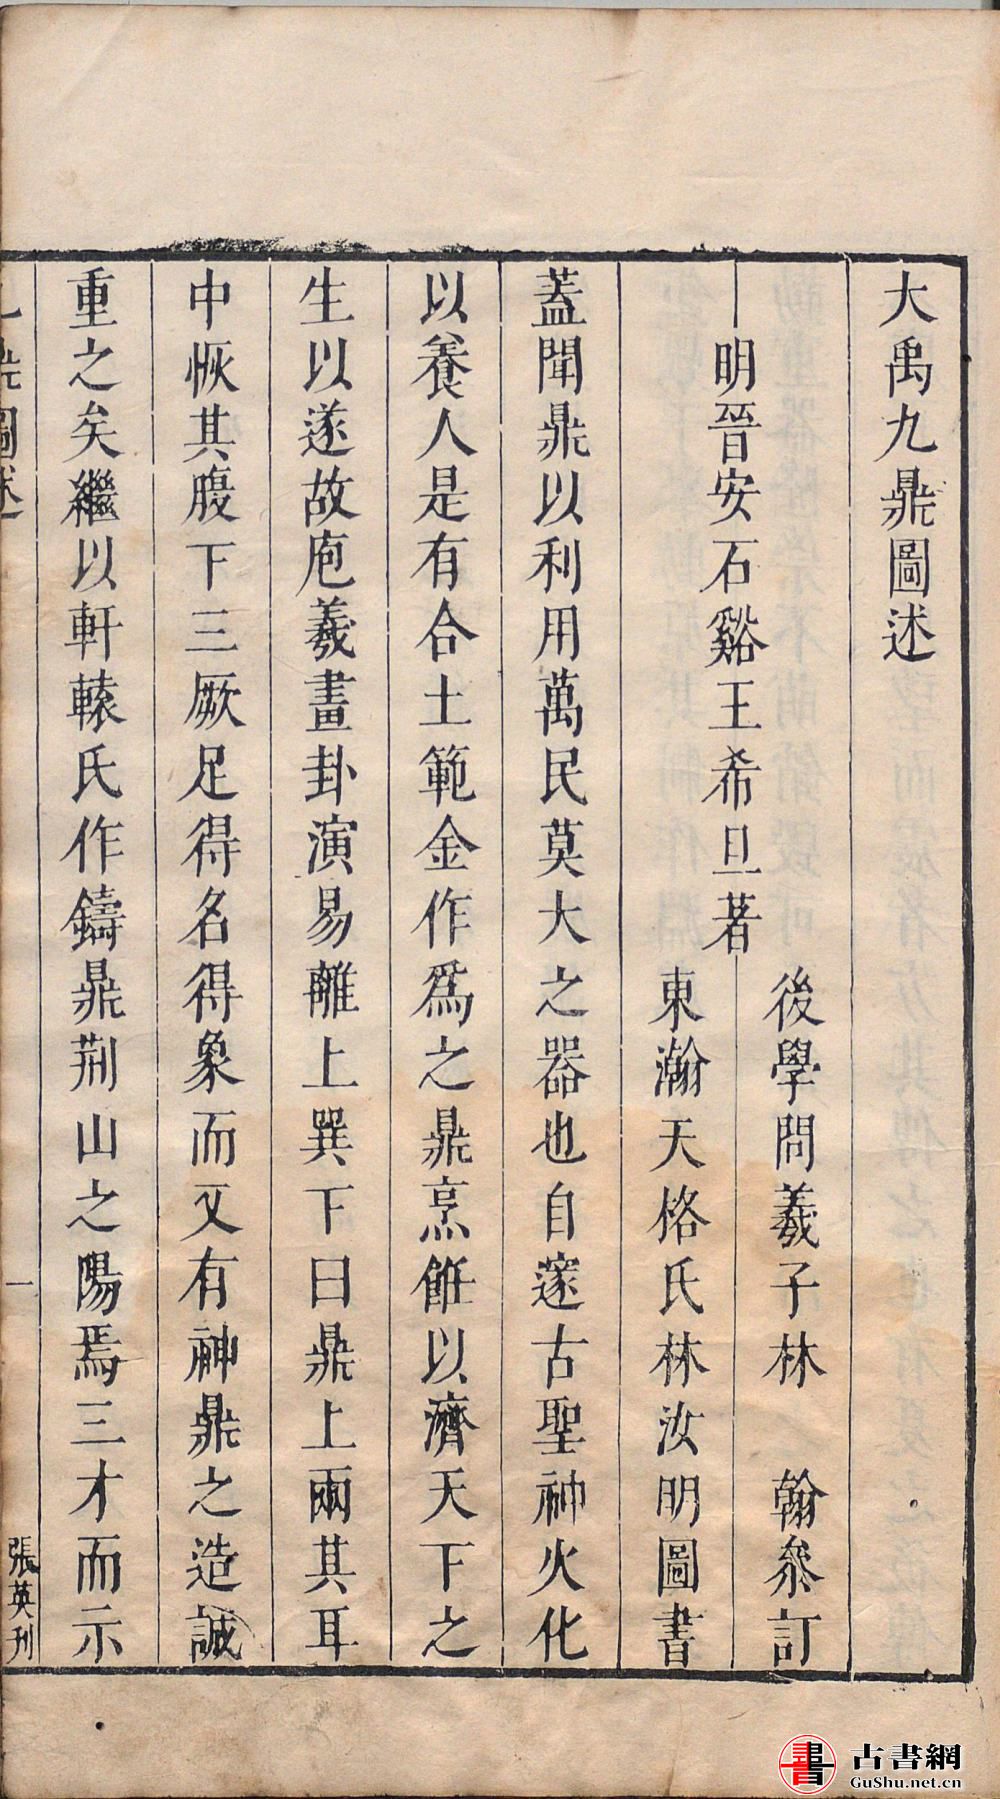 大禹九鼎圖述
明晉安石谿王希旦著
後學問羲子林　翰叅訂
東瀚天格氏林汝明圖書
蓋聞鼎以利用萬民莫大之器也自邃古聖神火化
以養人是有合土範金作爲之鼎烹餁以濟天下之
生以遂故庖羲畫卦演易離上巽下曰鼎上兩其耳
中恢其腹下三厥足得名得象而又有神鼎之造誠
重之矣繼以軒轅氏作鑄鼎荊山之陽焉三才而示
九鼎圖述
一
張英刊
古書網
GuShu.net.cn